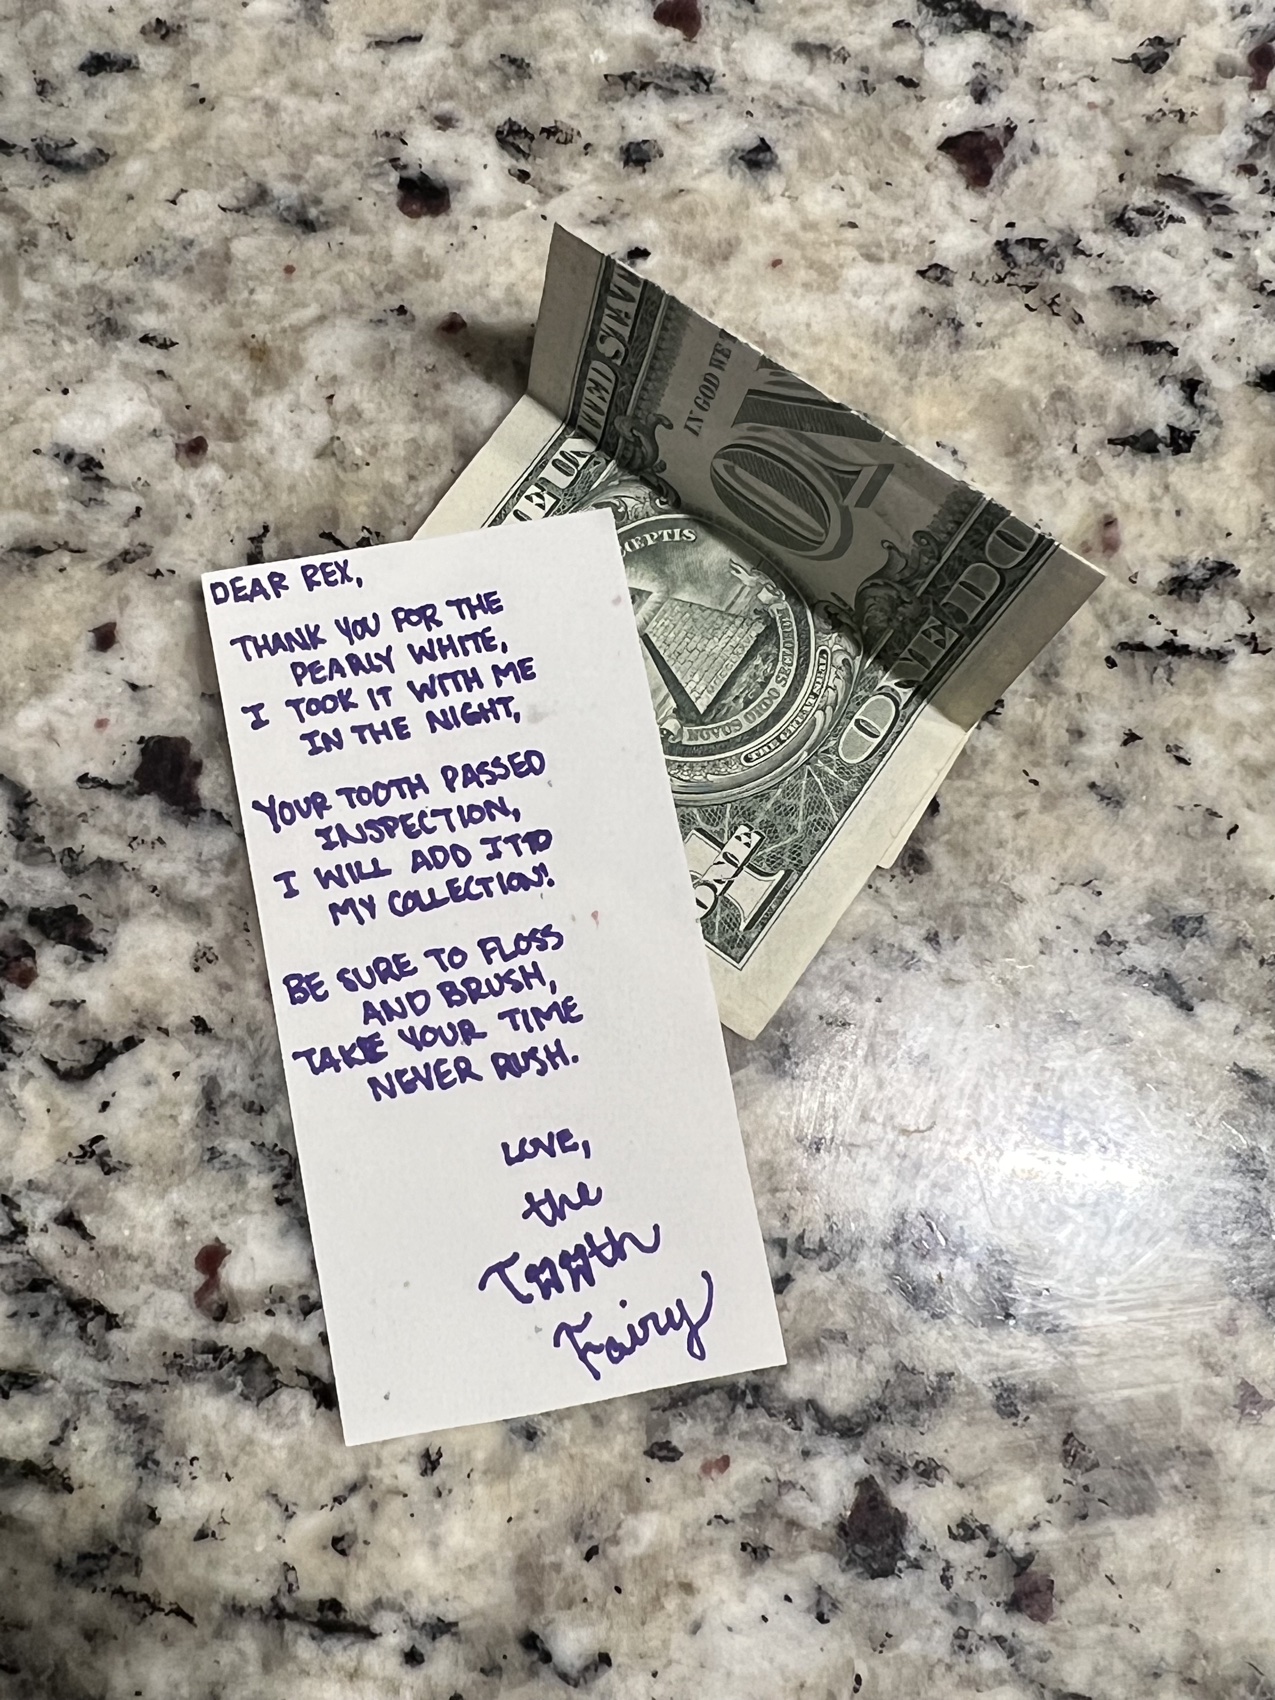 DEAR REX,
THANK YOU FOR THE
PEARLY WHITE,
I TOOK IT WITH ME
IN THE NIGHT,
YOUR TOOTH PASSED
INSPECTION,
I WILL ADD IT TO
MY COLLECTION!
BE SURE TO FLOSS
AND BRUSH,
TAKE YOUR TIME
NEVER RUSH.
LOVE,
the
Tooth
Fairy
IN GOD WE
ON
ONE DO
CŒPTIS
NOVUS ORDO SECLORUM
THE GREAT SEAL
ONE